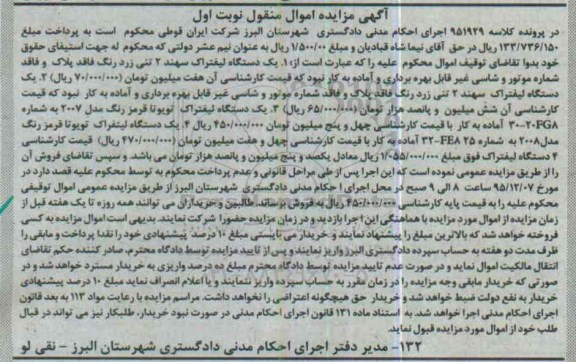 آگهی مزایده اموال منقول نوبت اول
در پرونده کلاسه ۹۵۱۹۲۹ اجرای احکام مدنی دادگستری شهرستان البرز شرکت ایران قوطی محکوم است به پرداخت مبلغ
۱۳۳/۷۳۶/۱۵۰ ریال در حق آقای نیما شاه قبادیان و مبلغ ۱/۵۰۰/۰۰۰ ریال به عنوان نیم عشر دولتی که محکوم له جهت استیفای حقوق
خود بدوا تقاضای توقیف اموال محکوم علیه را که عبارت است از:۱. یک دستگاه لیفتراک سهند ۲ تنی زرد رنگ فاقد پلاک و فاقد
شماره موتور و شاسی غیر قابل بهره برداری و آماده به کار نبود که قیمت کارشناسی آن هفت میلیون تومان (۷۰/۰۰۰/۰۰۰ ریال) ۲. یک
دستگاه لیفتراک سهند ۲ تنی زرد رنگ فاقد پلاک و فاقد شماره موتور و شاسی غیر قابل بهره برداری و آماده به کار نبود که قیمت
کارشناسی آن شش میلیون و پانصد هزار تومان (۶۵/۰۰۰/۰۰۰ ریال) ۳. یک دستگاه لیفتراک تویوتا قرمز رنگ مدل ۲۰۰۷ به شماره
۳۰-۲۰FG۸ آماده به کار با قیمت کارشناسی چهل و پنج میلیون تومان ۴۵۰/۰۰۰/۰۰۰ ریال ۴. یک دستگاه لیفتراک تویوتا قرمز رنگ
مدل۲۰۰۸ به شماره ۲۵ ۳۲-FE۸ آماده به کار با قیمت کارشناسی چهل و هفت میلیون تومان (۴۷۰/۰۰۰/۰۰۰ ریال) قیمت کارشناسی
۴ دستگاه لیفتراک فوق مبلغ ۱/۰۵۵/۰۰۰/۰۰۰ ریال معادل یکصد و پنج میلیون و پانصد هزار تومان می باشد. و سپس تقاضای فروش آن
را از طریق مزایده عمومی نموده است که این اجرا پس از طی مراحل قانونی و عدم پرداخت محکوم به توسط محکوم علیه قصد دارد در
مورخ ۹۵/۱۲/۰۷ ساعت ۸ الی ۹ صبح در محل اجرای احکام مدنی دادگستری شهرستان البرز از طریق مزایده عمومی اموال توقیفی
محکوم علیه را به قیمت پایه کارشناسی ۴۵۰/۰۰۰/۰۰۰ ریال به فروش برساند. طالبین و خریداران می توانند همه روزه تا یک هفته قبل از
زمان مزایده از اموال مورد مزایده با هماهنگی این اجرا بازدید و در زمان مزایده حضورا شرکت نمایند. بدیهی است اموال مزایده به کسی
فروخته خواهد شد که بالاترین مبلغ را پیشنهاد نمایند و خریدار می بایستی مبلغ ۱۰ درصد پیشنهادی خود را نقدا پرداخت و مابقی را
ظرف مدت دو هفته به حساب سپرده دادگستری البرز واریز نمایند و پس از تایید مزایده توسط دادگاه محترم، صادر کننده حکم تقاضای
انتقال مالکیت اموال نماید و در صورت عدم تایید مزایده توسط دادگاه محترم مبلغ ده درصد واریزی به خریدار مسترد خواهد شد و در
صورتی که خریدار مابقی وجه مزایده را در زمان مقرر به حساب سپرده واریز ننمایند و یا اعلام انصراف نماید مبلغ ۱۰ درصد پیشنهادی
خریدار به نفع دولت ضبط خواهد شد و خریدار حق هیچگونه اعتراضی را نخواهد داشت. مراسم مزایده با رعایت مواد ۱۱۳ به بعد قانون
اجرای احکام مدنی اجرا خواهد شد. به استناد ماده ۱۳۱ قانون اجرای احکام مدنی در صورت نبود خریدار، طلبکار نیز می تواند در قبال
طلب خود از اموال مورد مزایده قبول نماید.
۱۳۲- مدیر دفتر اجرای احکام مدنی دادگستری شهرستان البرز - نقی لو